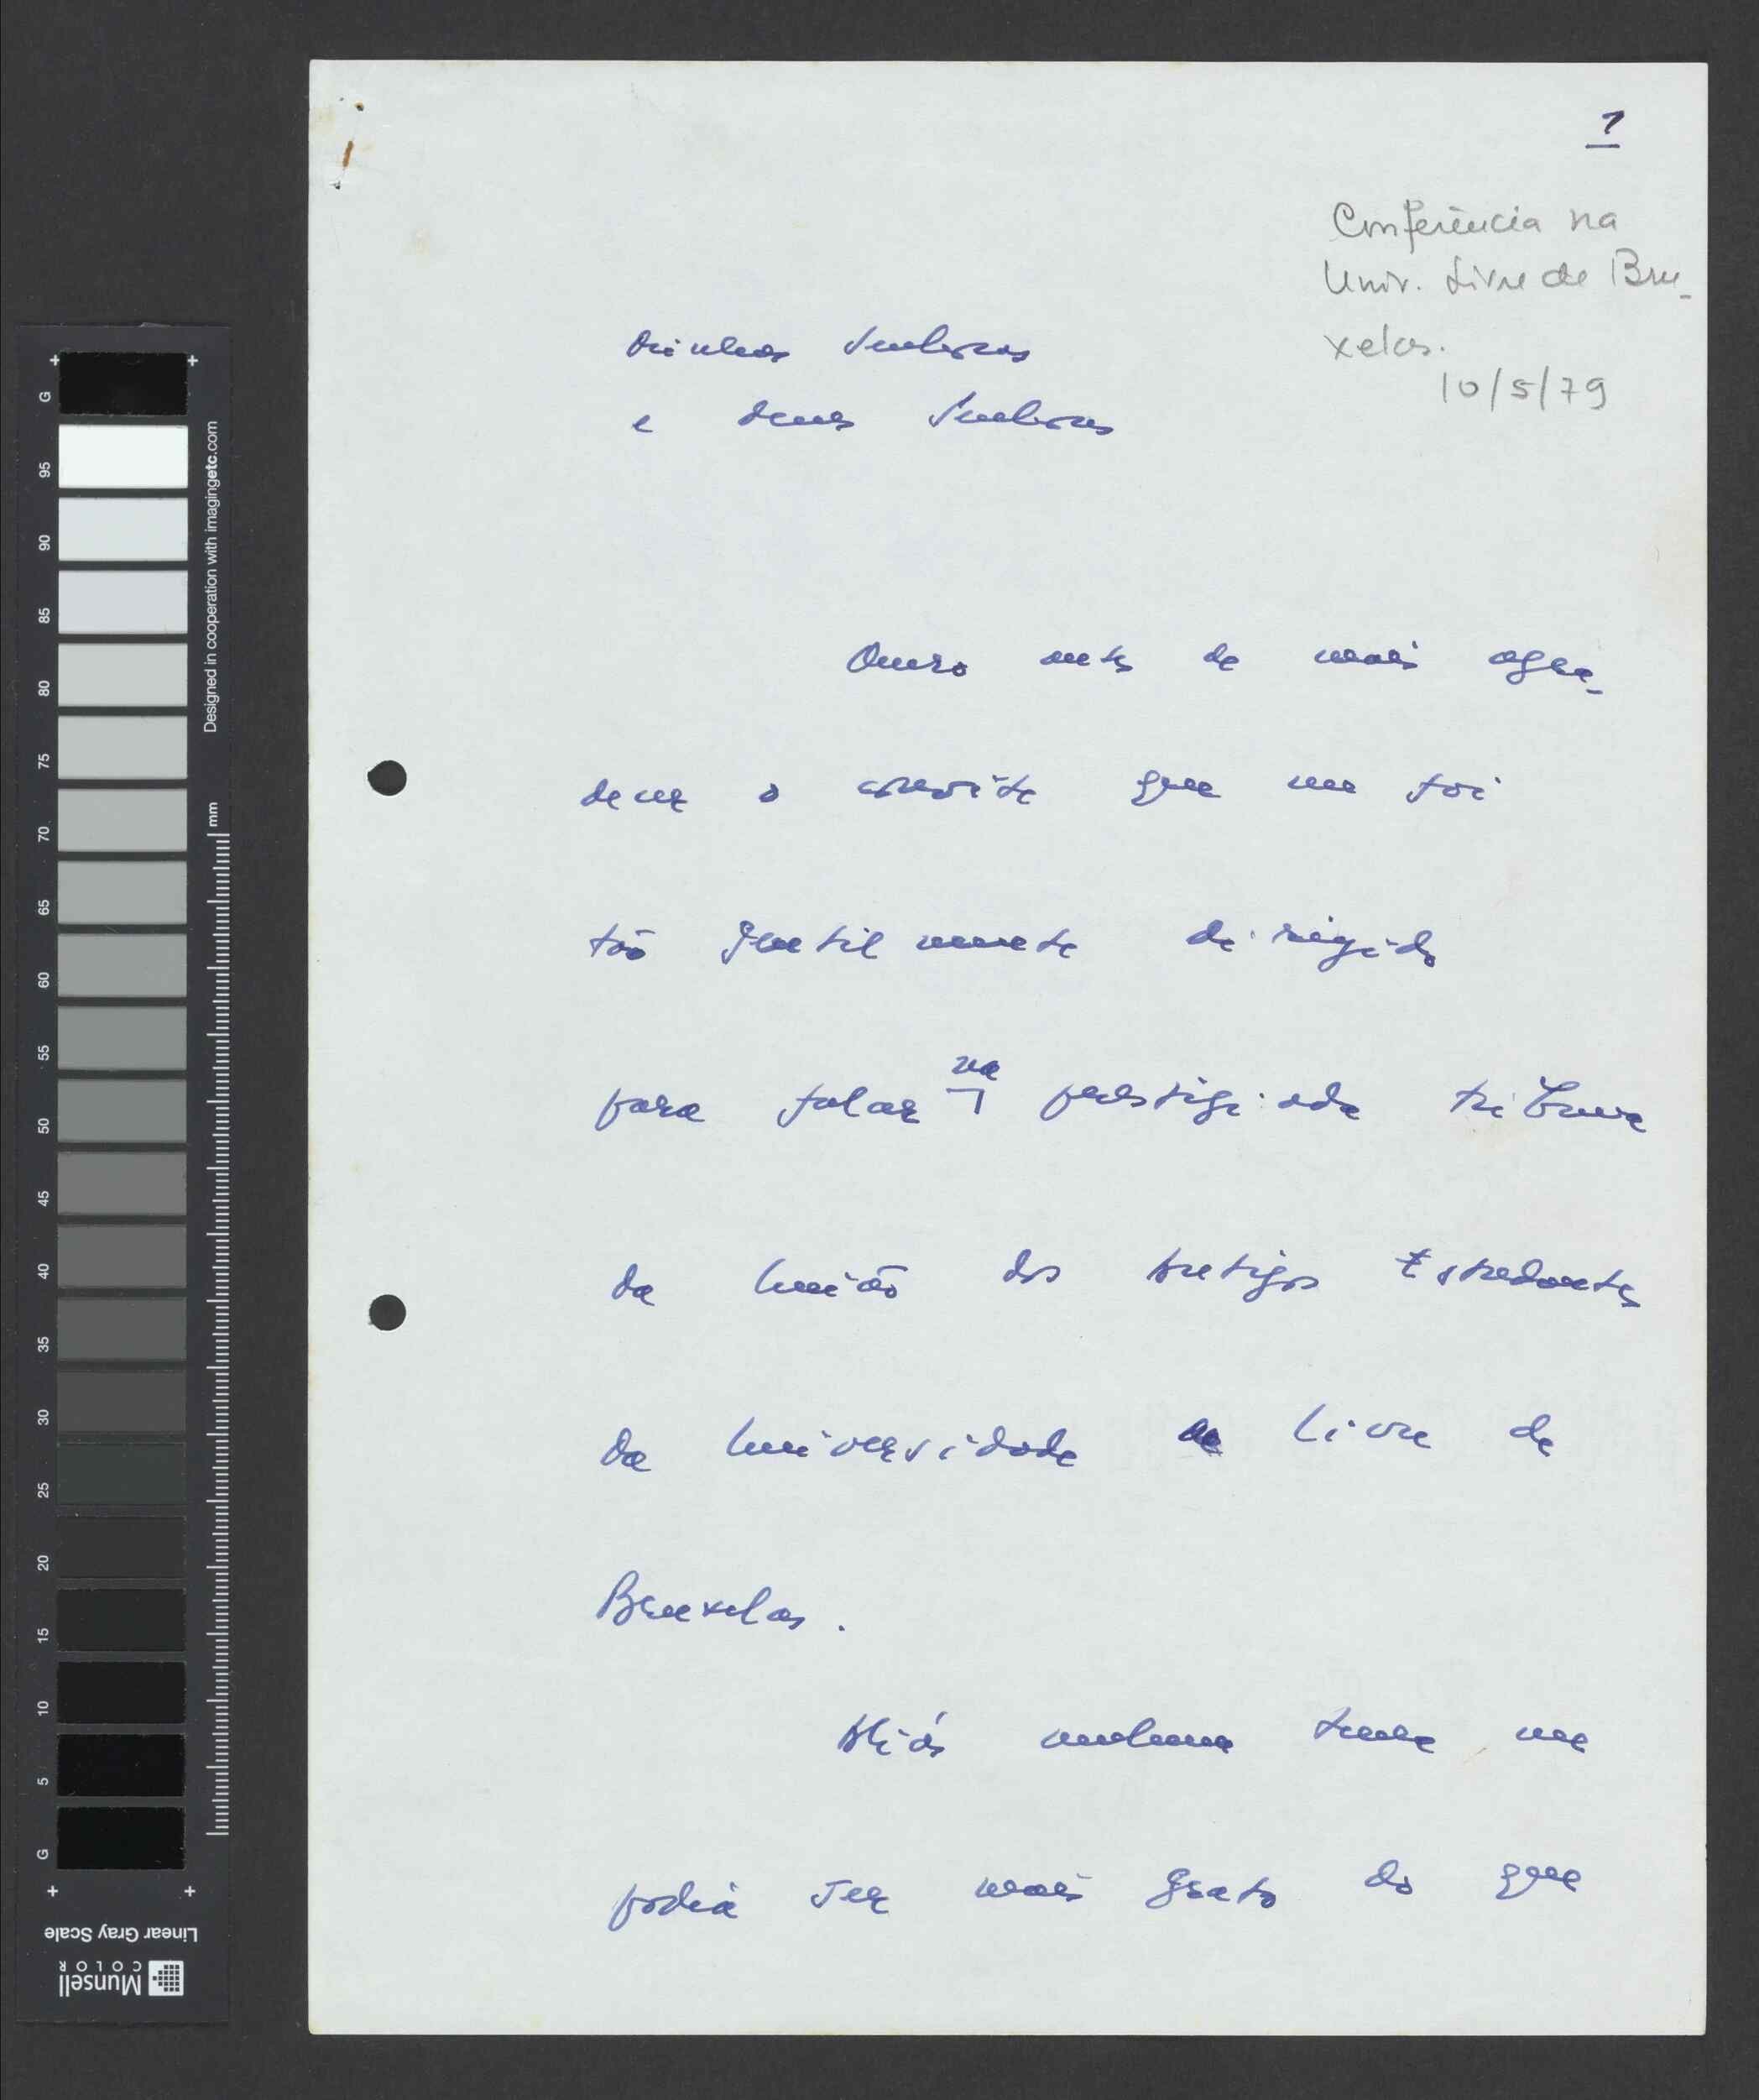 1
Conferência na
Univ. Livre de Bru-
xelas.
10/5/79
Minhas Senhoras
e Meus Senhores
Quero antes de mais agra-
decer o convite que me foi
tão gentilmente dirigido
para falar na prestigiada tribuna
da União dos Antigos Estudantes
da Universidade Livre de
Bruxelas.
Aliás nenhum tema me
podia ser mais grato do que
G 95 90 85 80 75 70 65 60 55 50 45 40 35 30 25 20 15 10 5 G
Designed in cooperation with imagingetc.com
mm
Linear Gray Scale
Munsell
COLOR